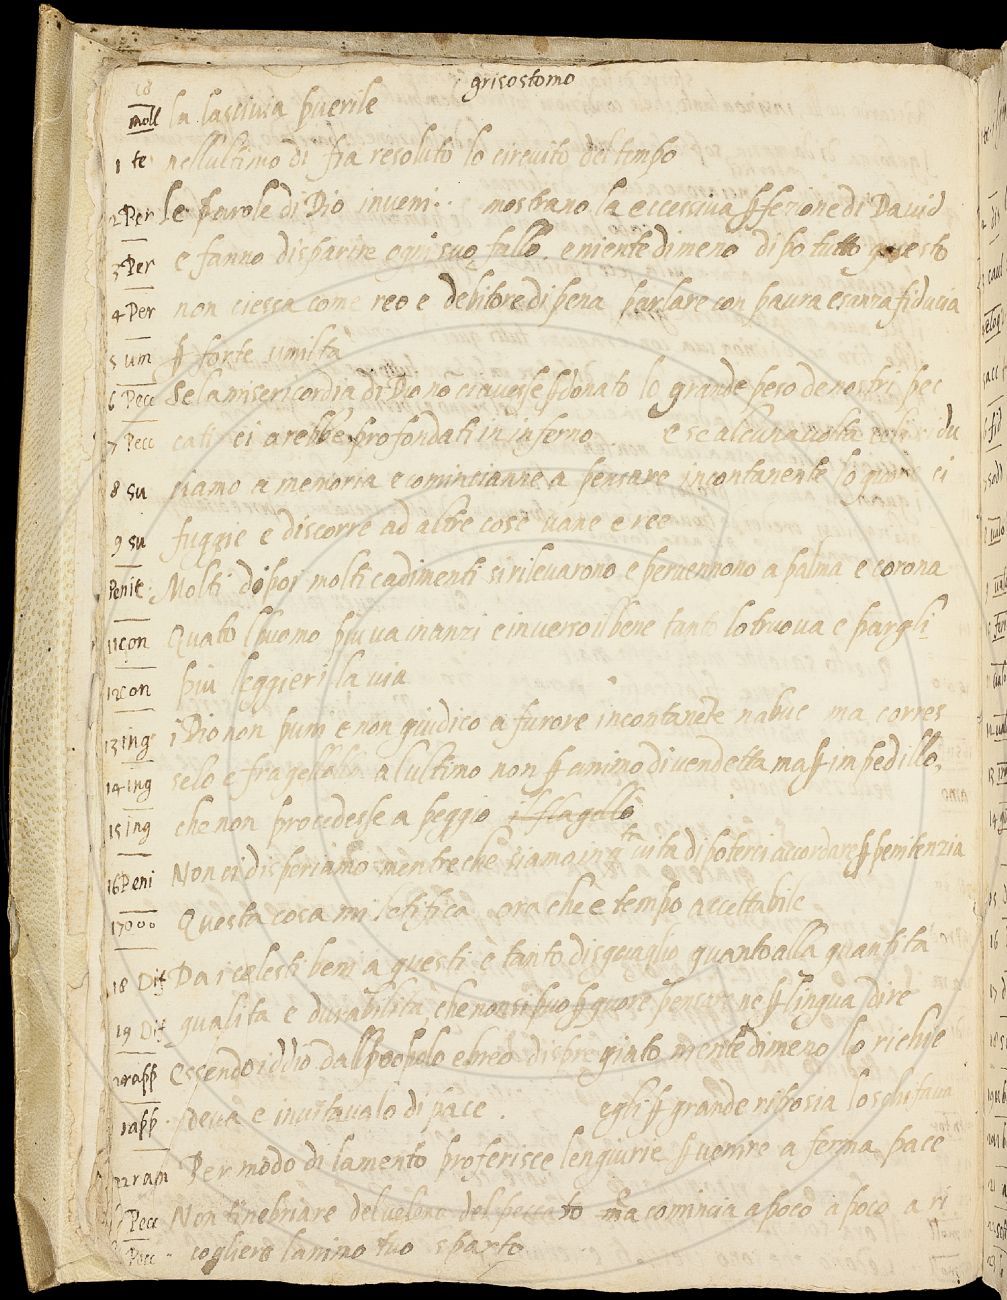 18
grisostomo
moll la lascivia puerile
1 te nellultimo di fia resoluto lo circuito del tempo
2 Per le parole di Dio inveni mostrano la eccessiva ꝑfezione di David
3 Per e fanno disparire ogni suo fallo. e niente di meno dipo tutto questo
4 Per non ciessa come reo e debitore di pena parlare con paura e sanza fiducia
5 um ꝑ forte umilta
6 Pecc Se la misericordia di Dio no ci avesse ꝑdonato lo grande peso de nostri pec
7 Pecc cati ci arebbe profondati in inferno e se alcuna volta ridu
8 su ciamo a memoria e comincianne a pensare incontanente lo quor ci
9 su fuggie e discorre ad altre cose vane e ree
Penit Molti dipoi molti cadimenti si rilevarono e pervennono a palma e corona
11 con Quato luomo piu va inanzi e in verso il bene tanto lo truova e pargli
12 con piu leggieri la via
13 ing i Dio non puni e non giudico a furore incontanete nabuc ma corres
14 ing selo e fragellalo alultimo non ꝑ animo di vendetta ma ꝑ impedillo,
15 ing che non procedesse a peggio il flagello
16 Peni Non ci disperiamo mentre che siamo in qta vita di poterci accordare ꝑ penitenzia
17 000 Questa cosa mi letifica ora che e tempo accettabile
18 Dif Da i celesti beni a questi è tanto disguaglio quanto alla quantita
19 Dif qualita e durabilita che non si puo ꝑ quore pensare ne ꝑ lingua dire
20 app essendo iddio dal popolo ebreo dispregiato niente dimeno lo richie
1 app deva e invitavalo di pace. egli ꝑ grande risposia lo schifava
22 ram Per modo di lamento proferisce lengiurie ꝑ venire a ferma pace
Pecc Non tinebriare del veleno del peccato ma comincia a poco a poco a ri
Pecc cogliere lanimo tuo sparto